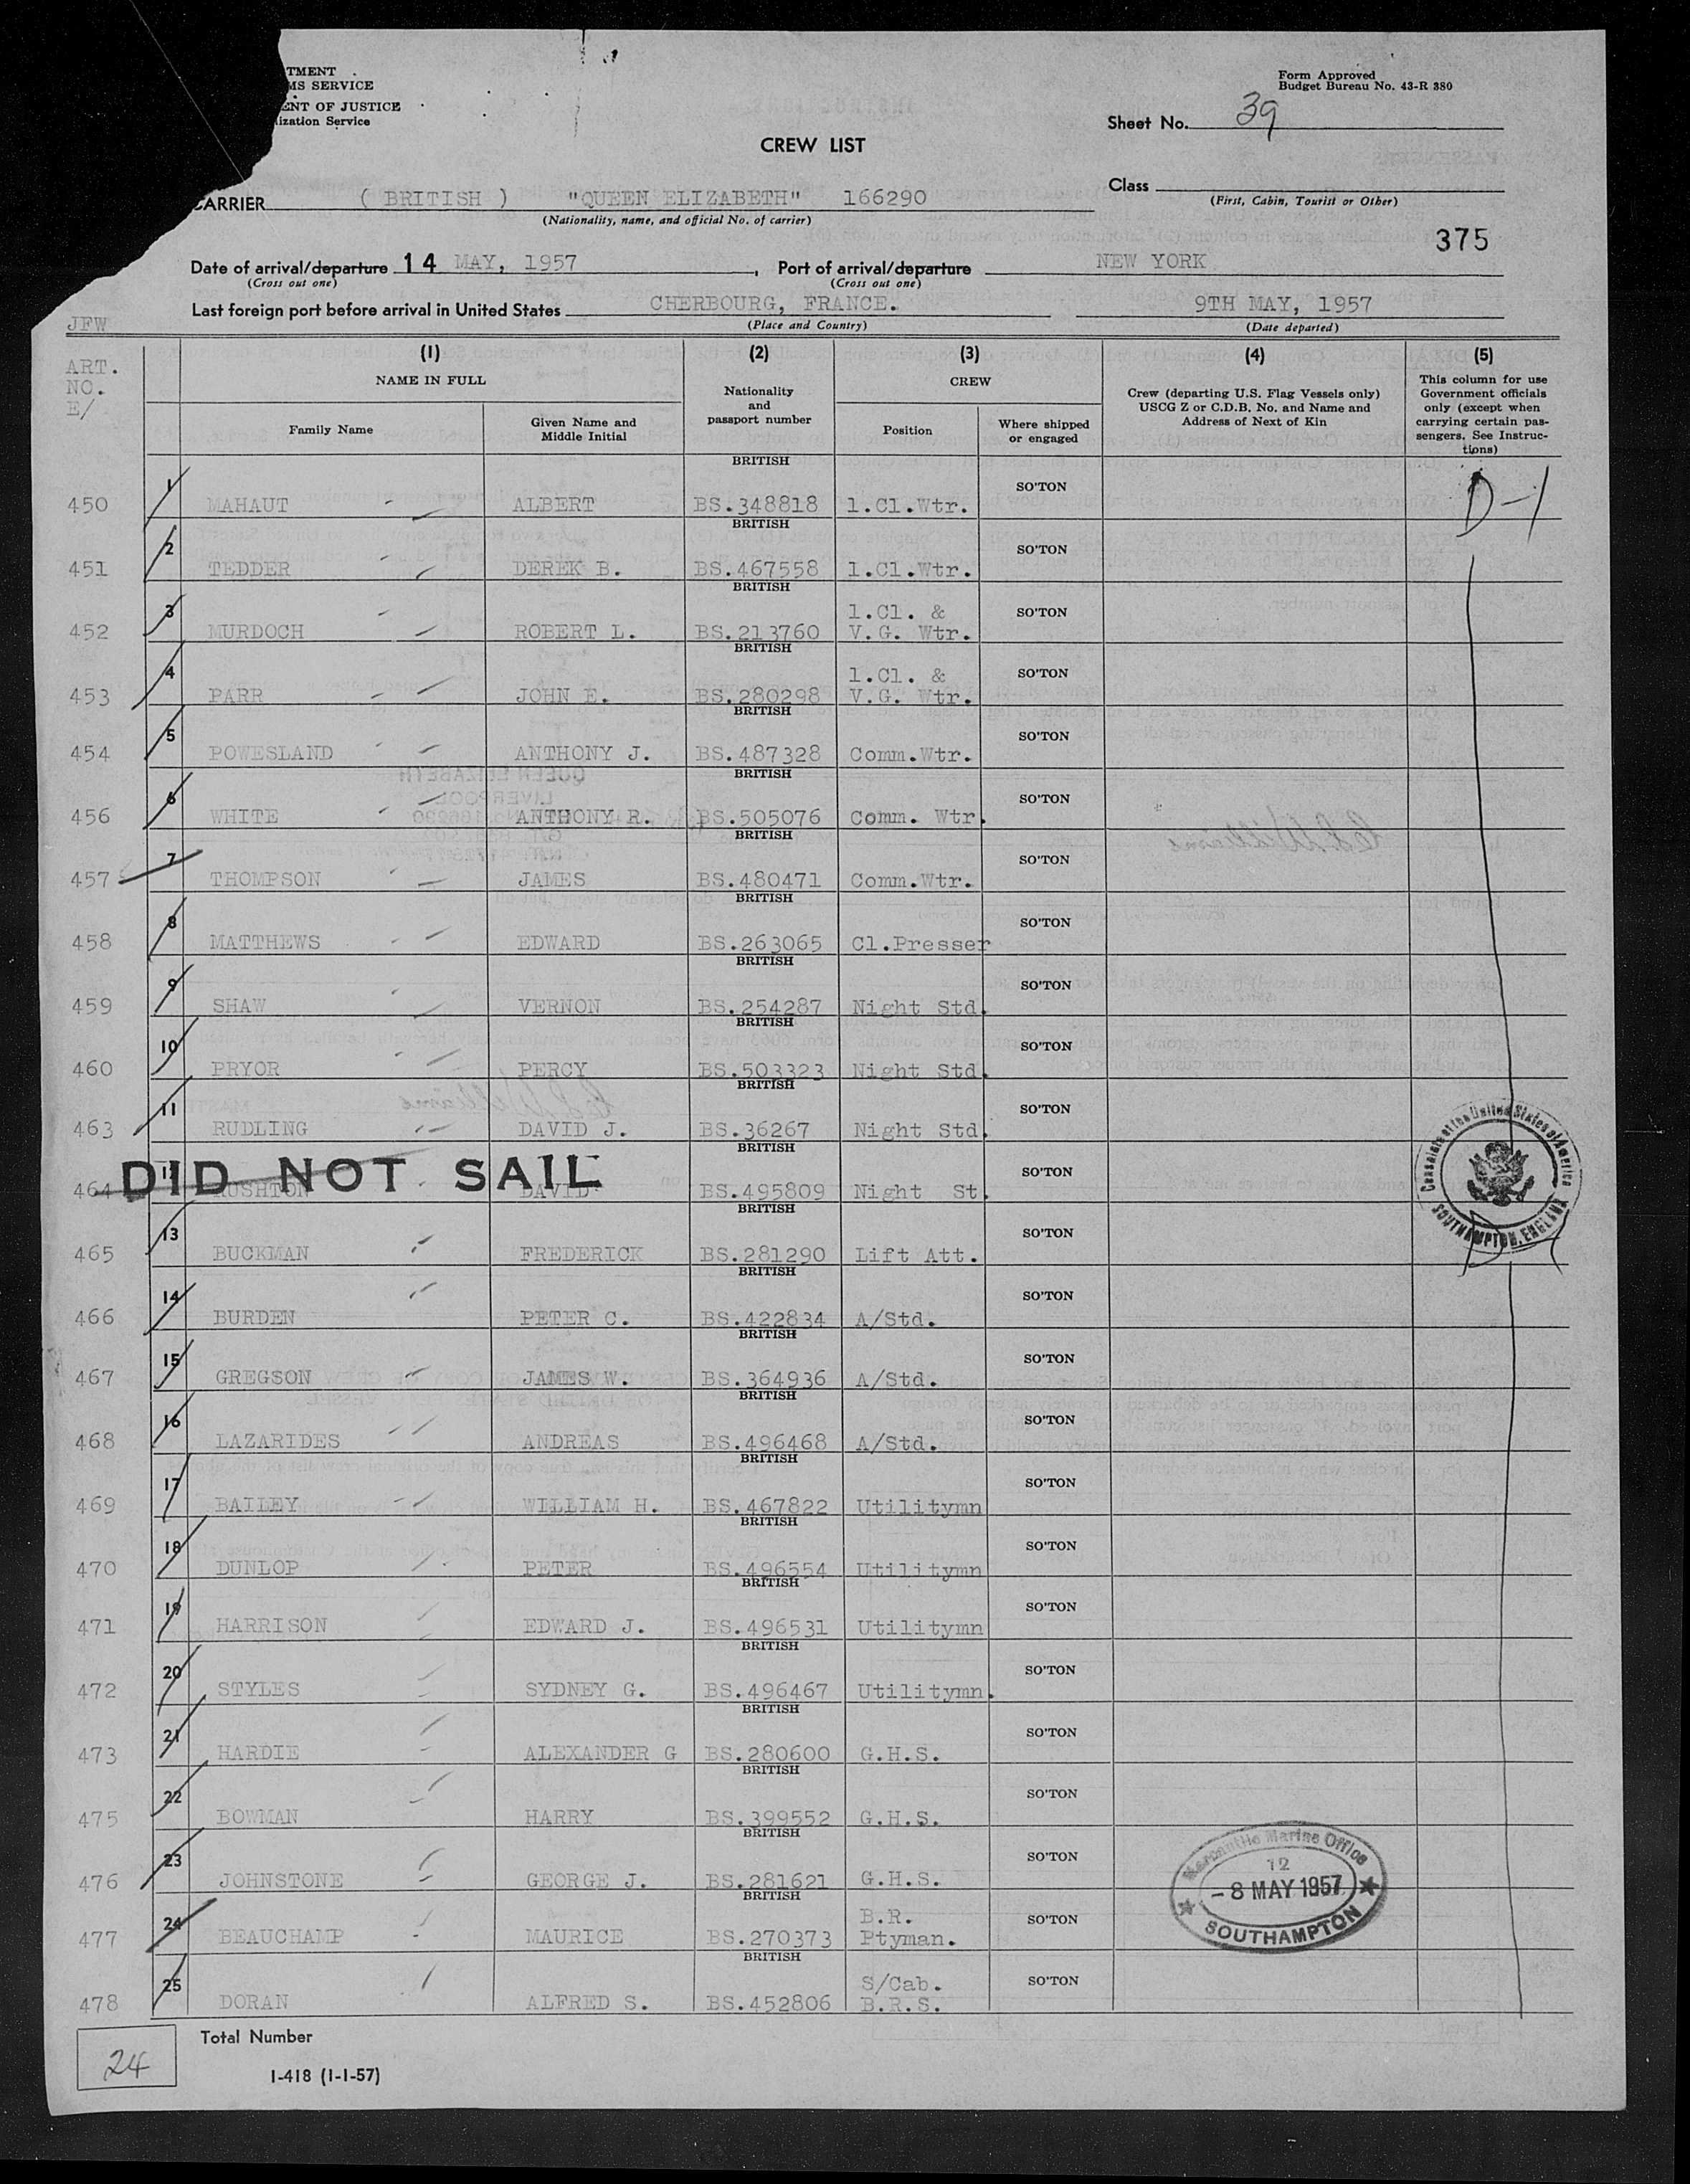 TMENT
MS SERVICE
ENT OF JUSTICE
ization Service
Form Approved
Budget Bureau No. 43-R 380
Sheet No. 39
CREW LIST
Class
(First, Cabin, Tourist or Other)
CARRIER ( BRITISH ) "QUEEN ELIZABETH" 166290
(Nationality, name, and official No. of carrier)
375
Date of arrival/departure 14 MAY, 1957, Port of arrival/departure NEW YORK
(Cross out one) (Cross out one)
Last foreign port before arrival in United States CHERBOURG, FRANCE. 9TH MAY, 1957
(Place and Country) (Date departed)
JFW
ART.
NO.
E/
(1) (2) (3) (4) (5)
NAME IN FULL
Family Name
Given Name and
Middle Initial
Nationality
and
passport number
CREW
Position
Where shipped
or engaged
Crew (departing U.S. Flag Vessels only)
USCG Z or C.D.B. No. and Name and
Address of Next of Kin
This column for use
Government officials
only (except when
carrying certain pas-
sengers. See Instruc-
tions)
BRITISH
450 1 MAHAUT ALBERT BS.348818 1.Cl.Wtr. SO'TON D-1
BRITISH
451 2 TEDDER DEREK B. BS.467558 1.Cl.Wtr. SO'TON
BRITISH
1.Cl. &
452 3 MURDOCH ROBERT L. BS.213760 V.G. Wtr. SO'TON
BRITISH
1.Cl. &
453 4 PARR JOHN E. BS.280298 V.G. Wtr. SO'TON
BRITISH
454 5 POWESLAND ANTHONY J. BS.487328 Comm.Wtr. SO'TON
BRITISH
456 6 WHITE ANTHONY R. BS.505076 Comm. Wtr. SO'TON
BRITISH
457 7 THOMPSON JAMES BS.480471 Comm.Wtr. SO'TON
BRITISH
458 8 MATTHEWS EDWARD BS.263065 Cl.Presser SO'TON
BRITISH
459 9 SHAW VERNON BS.254287 Night Std. SO'TON
BRITISH
460 10 PRYOR PERCY BS.503323 Night Std. SO'TON
BRITISH
463 11 RUDLING DAVID J. BS.36267 Night Std. SO'TON
BRITISH
DID NOT SAIL
464 RUSHTON DAVID BS.495809 Night St. SO'TON
Consulate of the United States of America
SOUTHAMPTON, ENGLAND
BRITISH
465 13 BUCKMAN FREDERICK BS.281290 Lift Att. SO'TON
BRITISH
466 14 BURDEN PETER C. BS.422834 A/Std. SO'TON
BRITISH
467 15 GREGSON JAMES W. BS.364936 A/Std. SO'TON
BRITISH
468 16 LAZARIDES ANDREAS BS.496468 A/Std. SO'TON
BRITISH
469 17 BAILEY WILLIAM H. BS.467822 Utilitymn SO'TON
BRITISH
470 18 DUNLOP PETER BS.496554 Utilitymn SO'TON
BRITISH
471 19 HARRISON EDWARD J. BS.496531 Utilitymn SO'TON
BRITISH
472 20 STYLES SYDNEY G. BS.496467 Utilitymn. SO'TON
BRITISH
473 21 HARDIE ALEXANDER G BS.280600 G.H.S. SO'TON
BRITISH
475 22 BOWMAN HARRY BS.399552 G.H.S. SO'TON
BRITISH
476 23 JOHNSTONE GEORGE J. BS.281621 G.H.S. SO'TON
BRITISH
B.R.
477 24 BEAUCHAMP MAURICE BS.270373 Ptyman. SO'TON
BRITISH
S/Cab.
478 25 DORAN ALFRED S. BS.452806 B.R.S. SO'TON
Mercantile Marine Office
12
- 8 MAY 1957
SOUTHAMPTON
24 Total Number
I-418 (1-1-57)